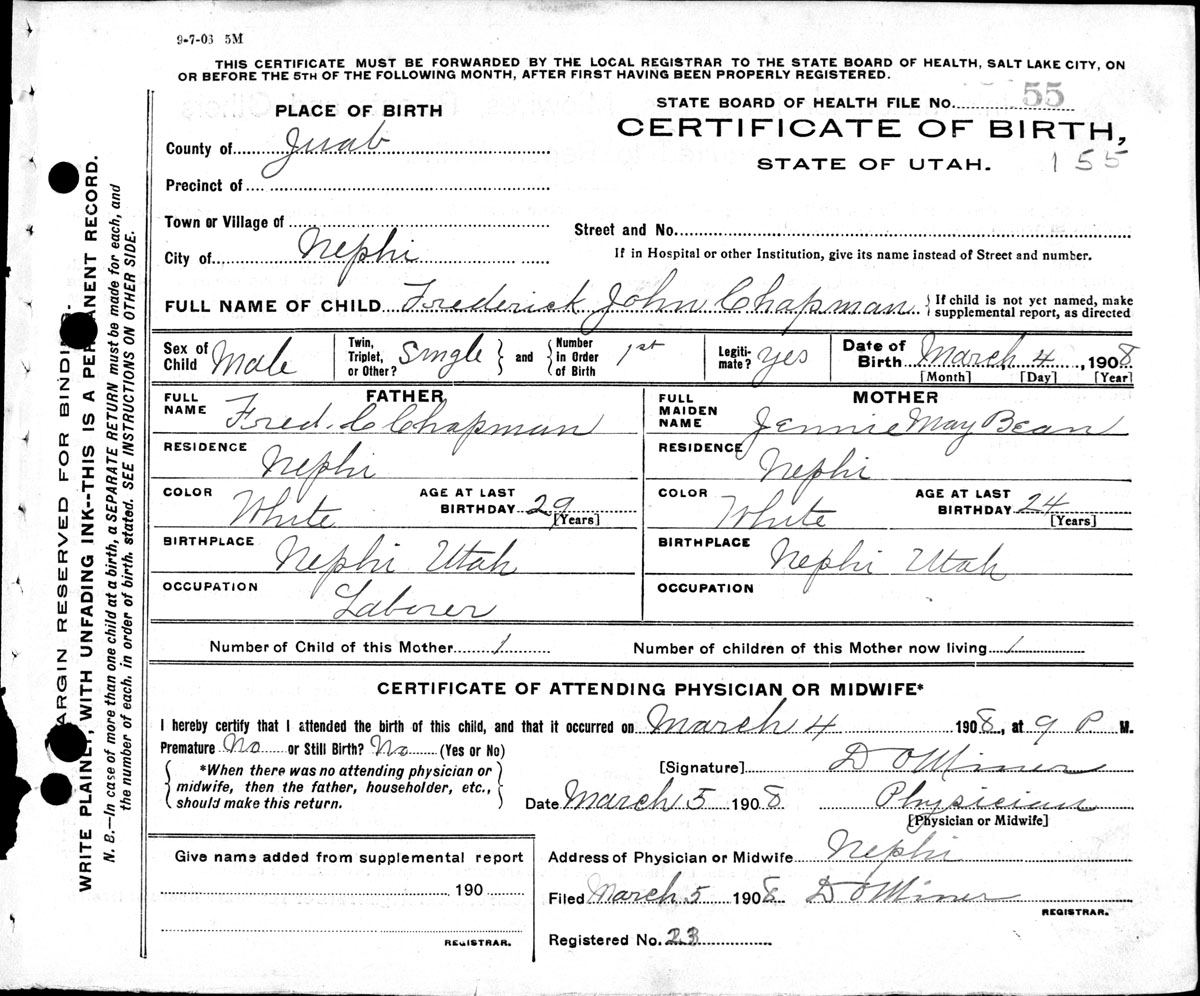 9-7-03 5M
THIS CERTIFICATE MUST BE FORWARDED BY THE LOCAL REGISTRAR TO THE STATE BOARD OF HEALTH, SALT LAKE CITY, ON
OR BEFORE THE 5TH OF THE FOLLOWING MONTH, AFTER FIRST HAVING BEEN PROPERLY REGISTERED.
MARGIN RESERVED FOR BINDING.
WRITE PLAINLY, WITH UNFADING INK--THIS IS A PERMANENT RECORD.
N. B.—In case of more than one child at a birth, a SEPARATE RETURN must be made for each, and
the number of each, in order of birth, stated. SEE INSTRUCTIONS ON OTHER SIDE.
PLACE OF BIRTH
County of Juab
Precinct of
Town or Village of
City of Nephi
STATE BOARD OF HEALTH FILE No. 55
CERTIFICATE OF BIRTH,
STATE OF UTAH. 155
Street and No.
If in Hospital or other Institution, give its name instead of Street and number.
FULL NAME OF CHILD Frederick John Chapman { If child is not yet named, make
supplemental report, as directed
Sex of Child Male
Twin, Triplet, or Other? Single } and { Number in Order of Birth 1st
Legitimate? yes
Date of Birth March 4, 1908
[Month] [Day] [Year]
FATHER
FULL NAME Fred. C Chapman
RESIDENCE Nephi
COLOR White AGE AT LAST BIRTHDAY 29 [Years]
BIRTHPLACE Nephi Utah
OCCUPATION Laborer
MOTHER
FULL MAIDEN NAME Jennie May Bean
RESIDENCE Nephi
COLOR White AGE AT LAST BIRTHDAY 24 [Years]
BIRTHPLACE Nephi Utah
OCCUPATION
Number of Child of this Mother 1 Number of children of this Mother now living 1
CERTIFICATE OF ATTENDING PHYSICIAN OR MIDWIFE*
I hereby certify that I attended the birth of this child, and that it occurred on March 4 1908, at 9 P M.
Premature No or Still Birth? No (Yes or No)
{ *When there was no attending physician or
midwife, then the father, householder, etc.,
should make this return. }
[Signature] D O Miner
Date March 5 1908 Physician
[Physician or Midwife]
Give name added from supplemental report
190
REGISTRAR.
Address of Physician or Midwife Nephi
Filed March 5 1908 D O Miner
REGISTRAR.
Registered No. 23